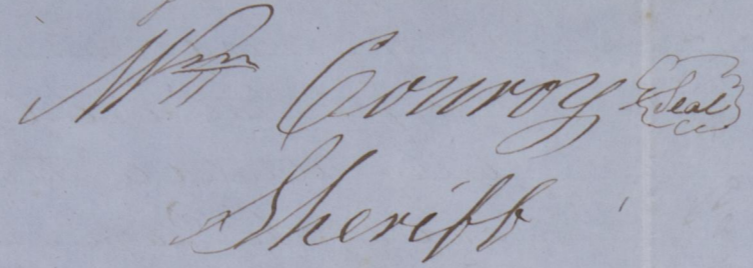 Wm Conroy Seal
Sheriff